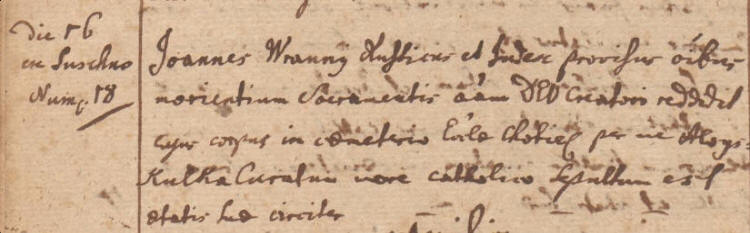 Die 16
ex Suschno
Num. 18
Joannes Wranny Rusticus et Judex provisus oibus
morientium Sacramentis aam DEO Creatori reddidit
cujus corpus in cemeterio Eccle Choties per me Aloys:
Kulka Curatum more catholico sepultum est
etatis sue circiter